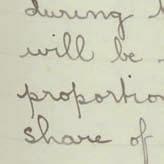 during
will be
proportion
share of